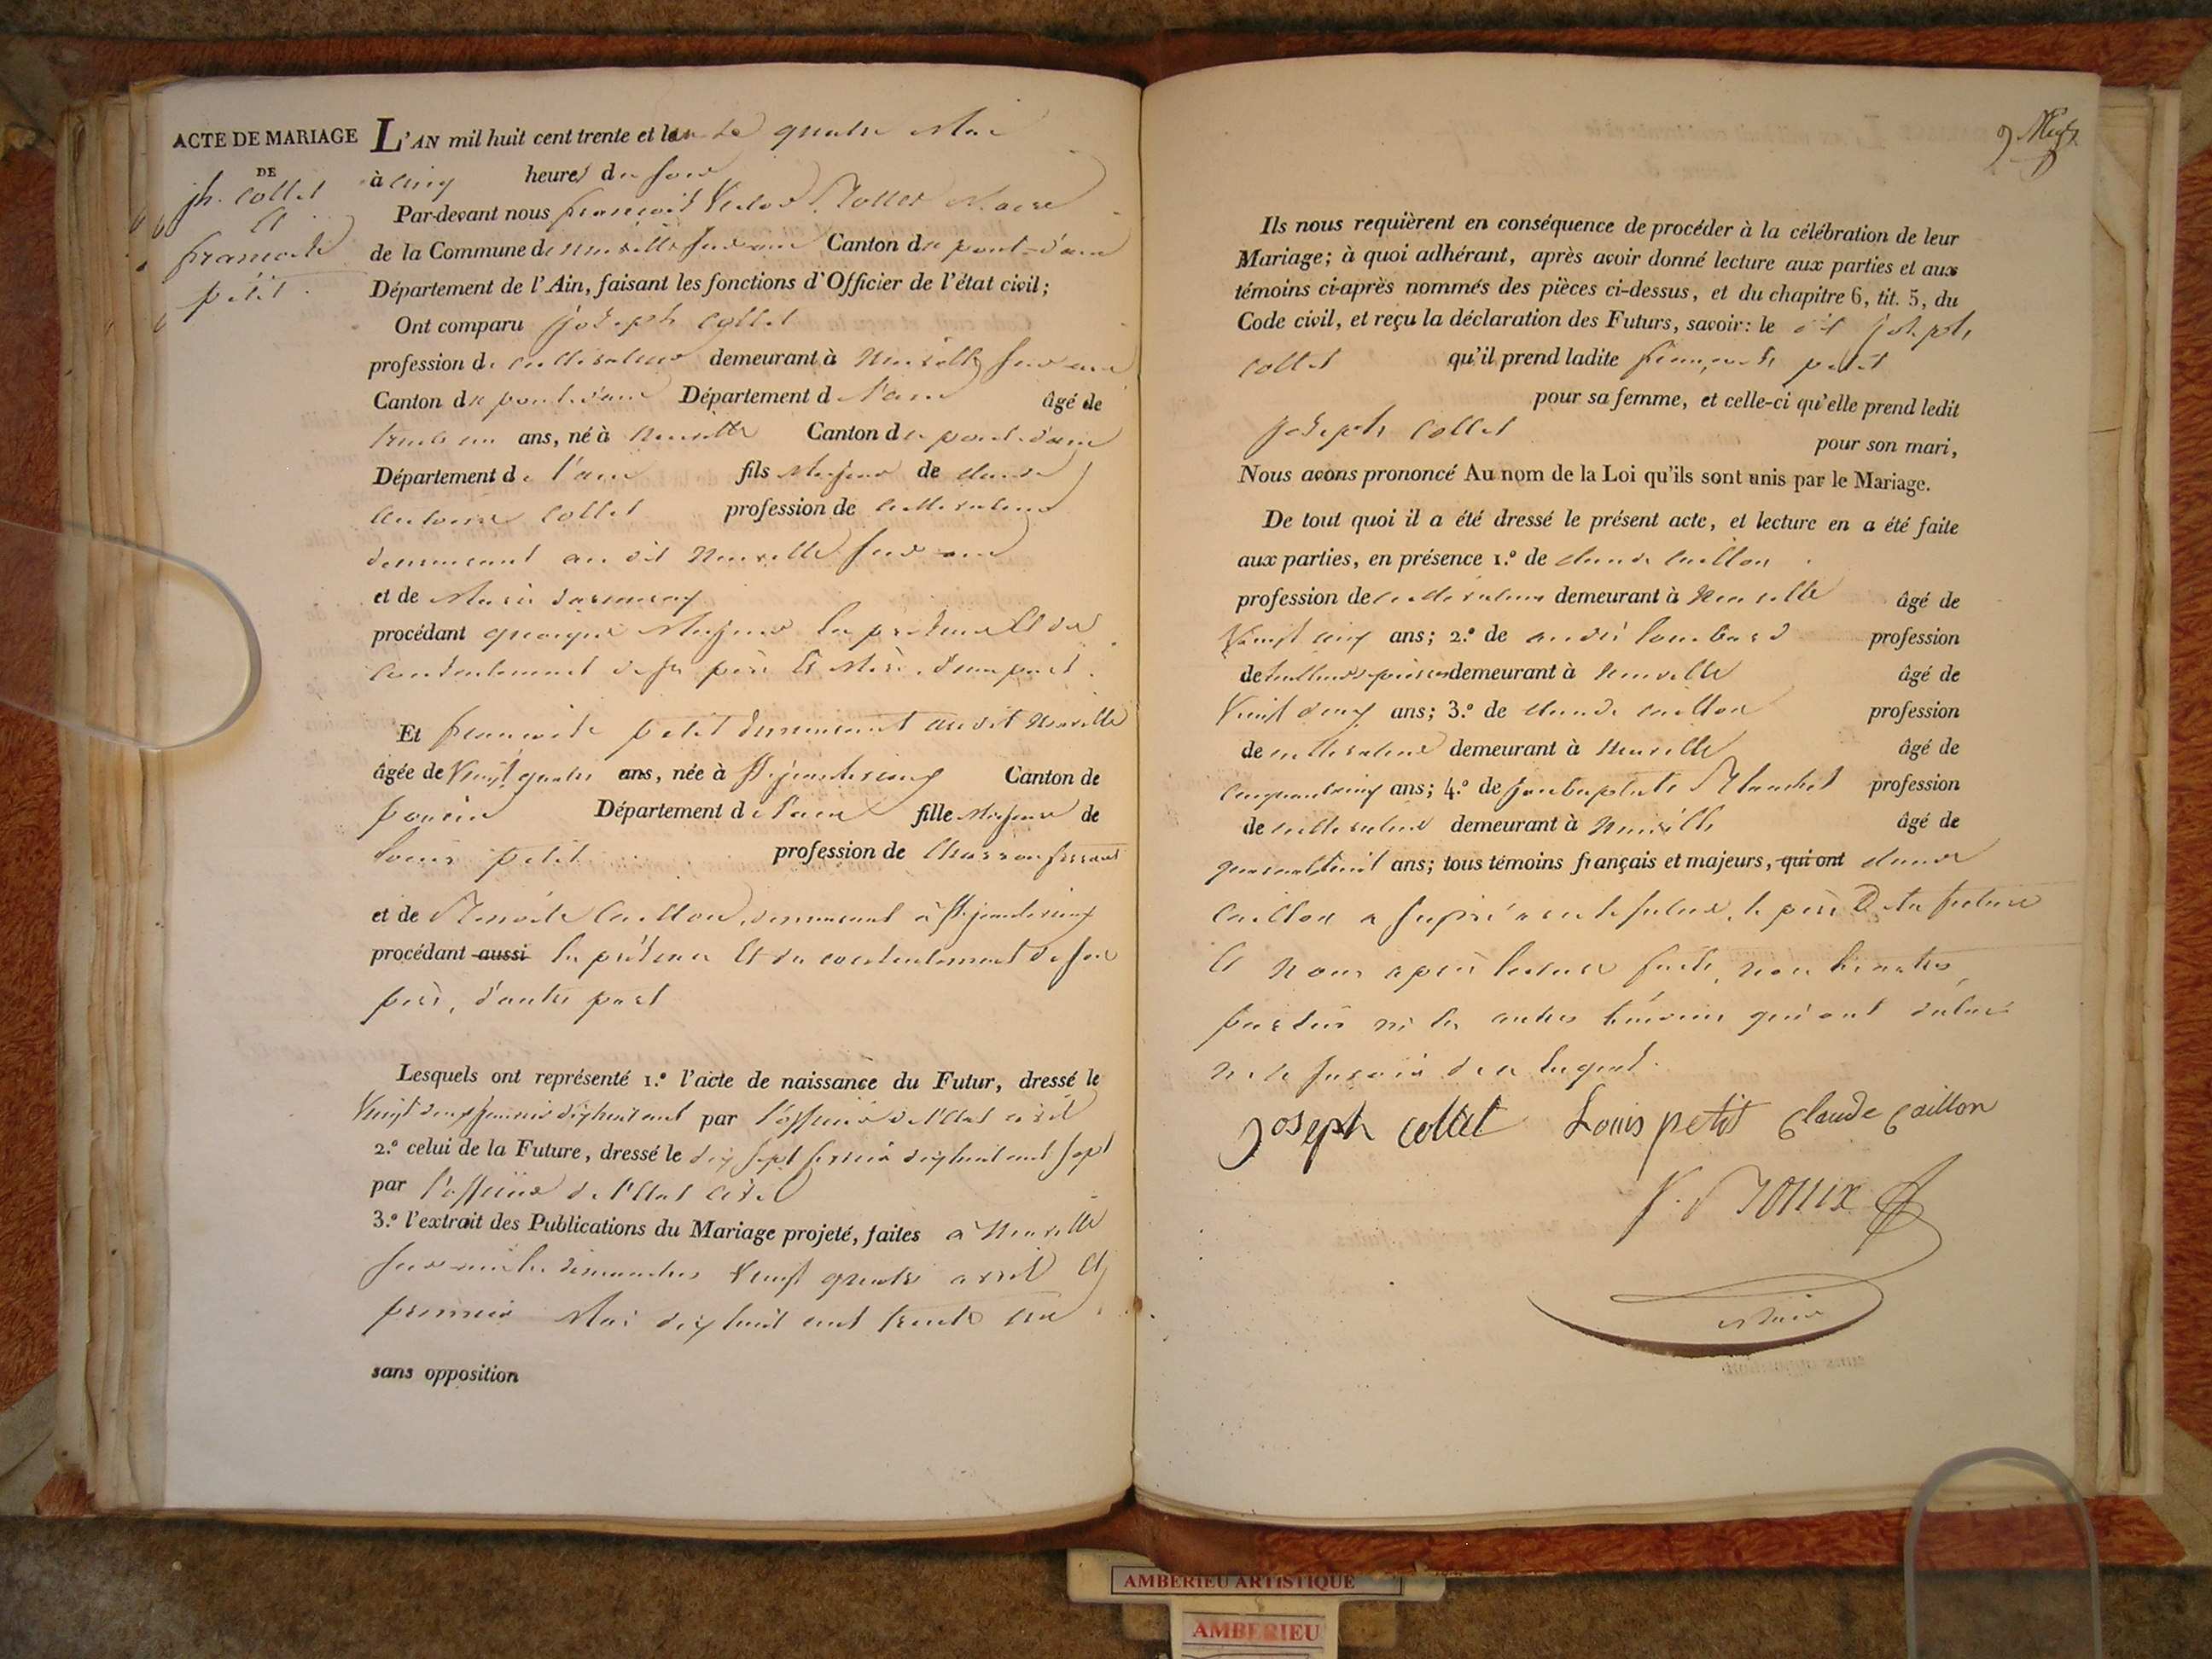 ACTE DE MARIAGE
DE
jh. Collet
Et
francoise
petit
L'AN mil huit cent trente et un le quatre Mai
à cinq heures du soir
Par-devant nous françois Victor Maire
de la Commune de neuville sur ain Canton de pont-d'ain
Département de l'Ain, faisant les fonctions d'Officier de l'état civil;
Ont comparu joseph collet
profession de cultivateur demeurant à Neuville sur ain
Canton de pont d'ain Département de l'ain âgé de
trente un ans, né à Neuville Canton de pont d'ain
Département de l'ain fils Majeur de claude
Antoine Collet profession de cultivateur
demeurant au dit Neuville sur ain
et de Marie
procédant quoique Majeur en présence Et du
consentement de ses père Et Mère, d'une part.
Et francoise petit demeurant au dit Neuville
âgée de Vingt quatre ans, née à St. jean le vieux Canton de
poncin Département de l'ain fille Majeure de
Louis petit profession de
et de Benoite Caillon, demeurant à St. jean le vieux
procédant aussi en présence Et du consentement de son
père, d'autre part
Lesquels ont représenté 1.º l'acte de naissance du Futur, dressé le
Vingt deux dix huit cent par l'officier de l'état civil
2.º celui de la Future, dressé le dix sept dix huit cent sept
par l'officier de l'Etat civil
3.º l'extrait des Publications du Mariage projeté, faites à Neuville
sur ain les dimanches Vingt quatre avril Et
premier Mai dix huit cent trente un
sans opposition
9
Ils nous requièrent en conséquence de procéder à la célébration de leur
Mariage; à quoi adhérant, après avoir donné lecture aux parties et aux
témoins ci-après nommés des pièces ci-dessus, et du chapitre 6, tit. 5, du
Code civil, et reçu la déclaration des Futurs, savoir: le dit joseph
collet qu'il prend ladite françoise petit
pour sa femme, et celle-ci qu'elle prend ledit
joseph collet
pour son mari,
Nous avons prononcé Au nom de la Loi qu'ils sont unis par le Mariage.
De tout quoi il a été dressé le présent acte, et lecture en a été faite
aux parties, en présence 1.º de claude caillon
profession de cultivateur demeurant à Neuville âgé de
Vingt cinq ans; 2.º de andré lombard profession
de tailleur de pierres demeurant à Neuville âgé de
Vingt deux ans; 3.º de claude caillon profession
de cultivateur demeurant à Neuville âgé de
cinquante cinq ans; 4.º de jean baptiste profession
de cultivateur demeurant à Neuville âgé de
quarante huit ans; tous témoins français et majeurs, qui ont claude
caillon a signé avec le futur, le père De la future
Et Nous après lecture faite, non les autres
parties ni les autres témoins qui ont déclaré
ne le savoir de ce enquis.
Joseph collet Louis petit Claude Caillon
Maire
sans opposition
AMBERIEU ARTISTIQUE
AMBERIEU